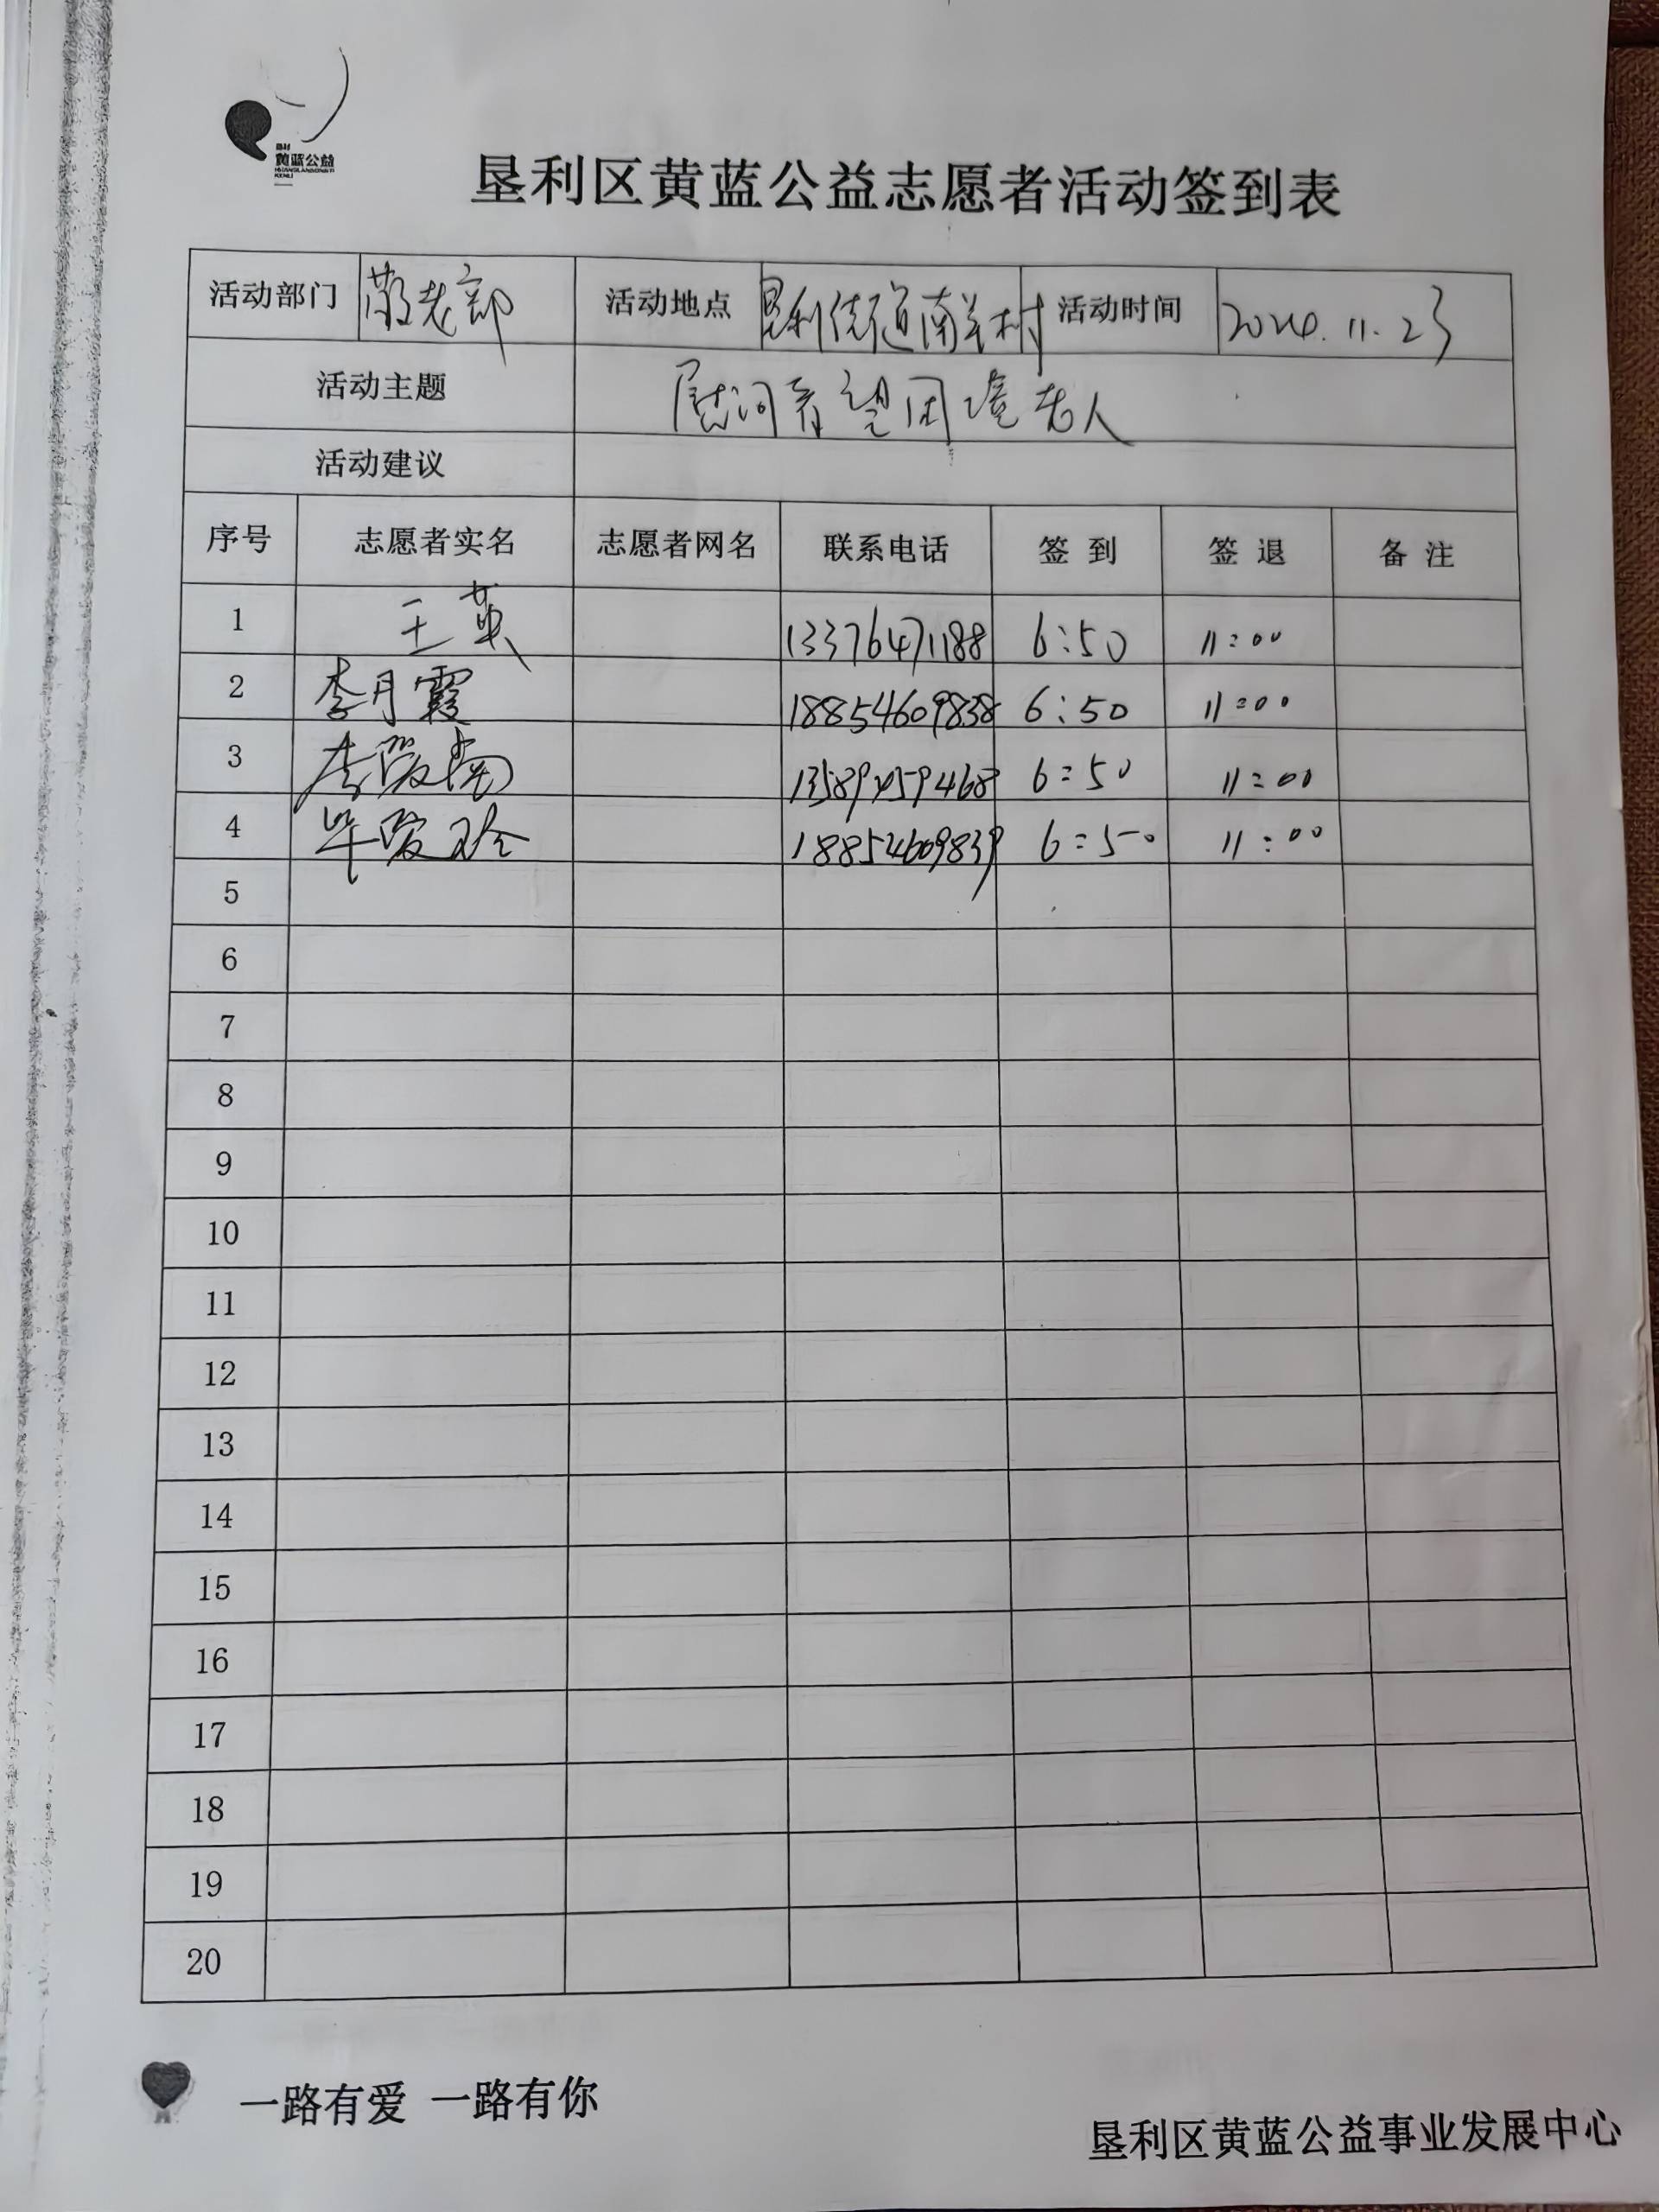 黄蓝公益
垦利区黄蓝公益志愿者活动签到表
活动部门 敬老部 活动地点 垦利街道南羊村 活动时间 2024.11.23
活动主题 慰问看望困境老人
活动建议
序号 志愿者实名 志愿者网名 联系电话 签到 签退 备注
1 王英 13376471188 6:50 11:00
2 李月霞 18854609838 6:50 11:00
3 李 6:50 11:00
4 毕爱玲 18854609839 6:50 11:00
5
6
7
8
9
10
11
12
13
14
15
16
17
18
19
20
一路有爱 一路有你
垦利区黄蓝公益事业发展中心